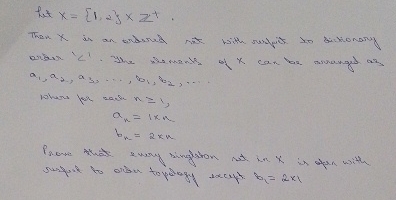 Let X = {1,2} X ℤ⁺.
Then X is an ordered set with respect to dictionary
order '<'. The elements of X can be arranged as
a₁, a₂, a₃, ..., b₁, b₂, ....
where for each n ≥ 1,
aₙ = 1xn
bₙ = 2xn
Prove that every singleton set in X is open with
respect to order topology except b₁ = 2x1